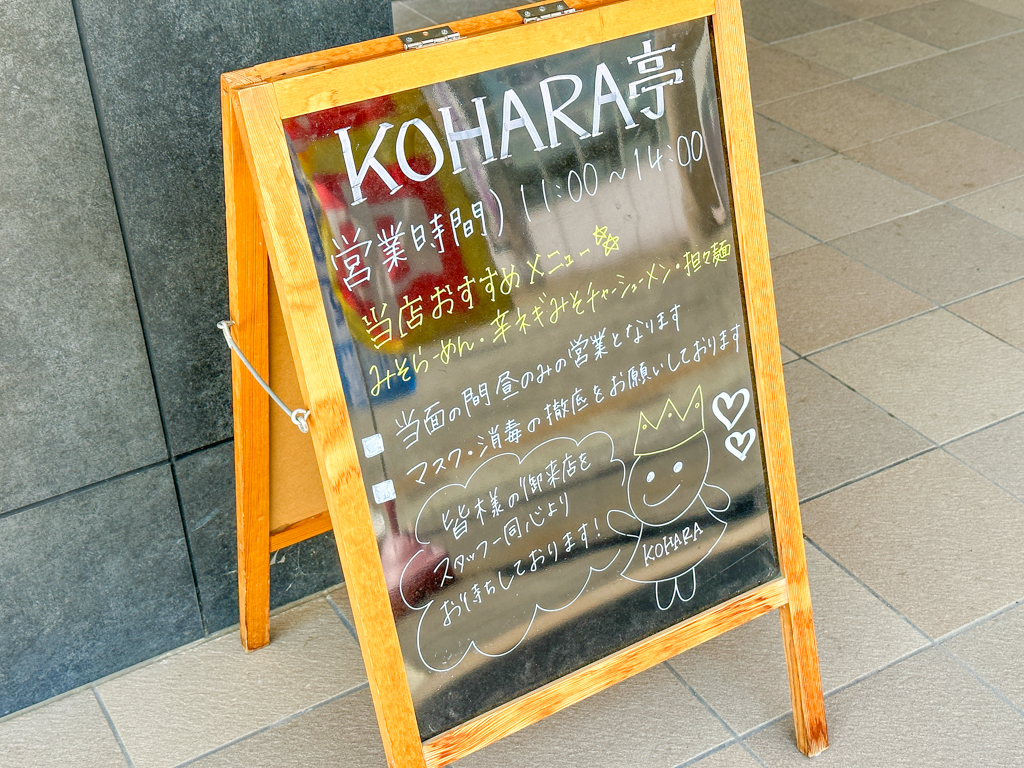 KOHARA亭
営業時間) 11:00~14:00
当店おすすめメニュー
みそらーめん・辛ネギみそチャーシューメン・担々麺
当面の間昼のみの営業となります
マスク・消毒の撤底をお願いしております
皆様の御来店を
スタッフ一同心より
お待ちしております!
KOHARA